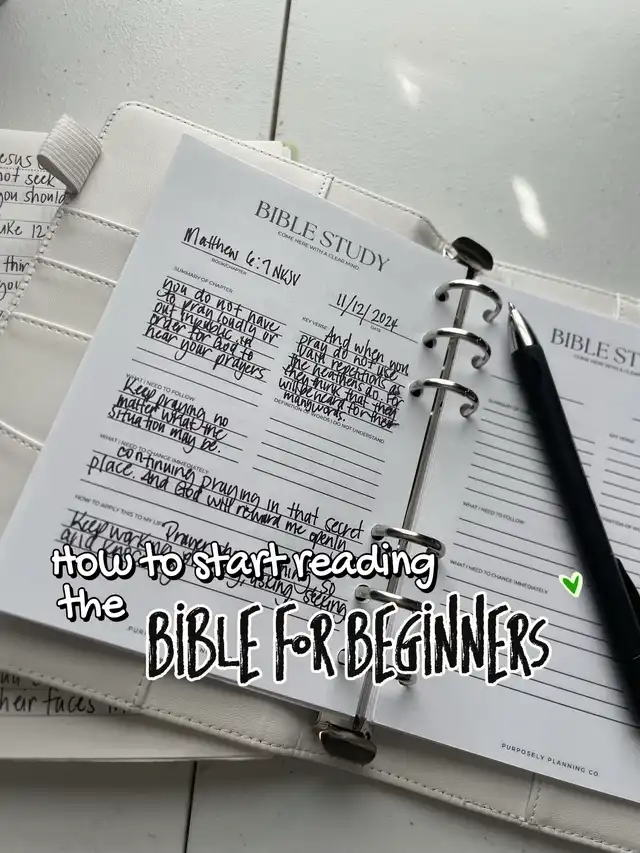 esus
not seek
you should
uke 12:
thin
you
BIBLE STUDY
COME HERE WITH A CLEAR MIND
Matthew 6:7 NKJV
BOOK/CHAPTER
11/12/2024
DATE
SUMMARY OF CHAPTER
you do not have
to pray loudly or
out in public in
order for God to
hear your prayers
KEY VERSE
And when you
pray do not use
vain repetitions as
the heathens do. For
they think that they
will be heard for their
many words.
DEFINITION OF WORDS I DO NOT UNDERSTAND
WHAT I NEED TO FOLLOW
Keep praying no
matter what the
situation may be.
WHAT I NEED TO CHANGE IMMEDIATELY
continuing praying in that secret
place. And God will reward me openly
HOW TO APPLY THIS TO MY LIFE
Prayer
Keep working
asking, seeking
and knocking
How to start reading
the
BIBLE FOR BEGINNERS
heir faces
BIBLE ST
COME HERE WITH A CLEAR
SUMMARY OF
KEY VERSE
WHAT I NEED TO FOLLOW
WHAT I NEED TO CHANGE IMMEDIATELY
PURPOSELY PLANNING CO.